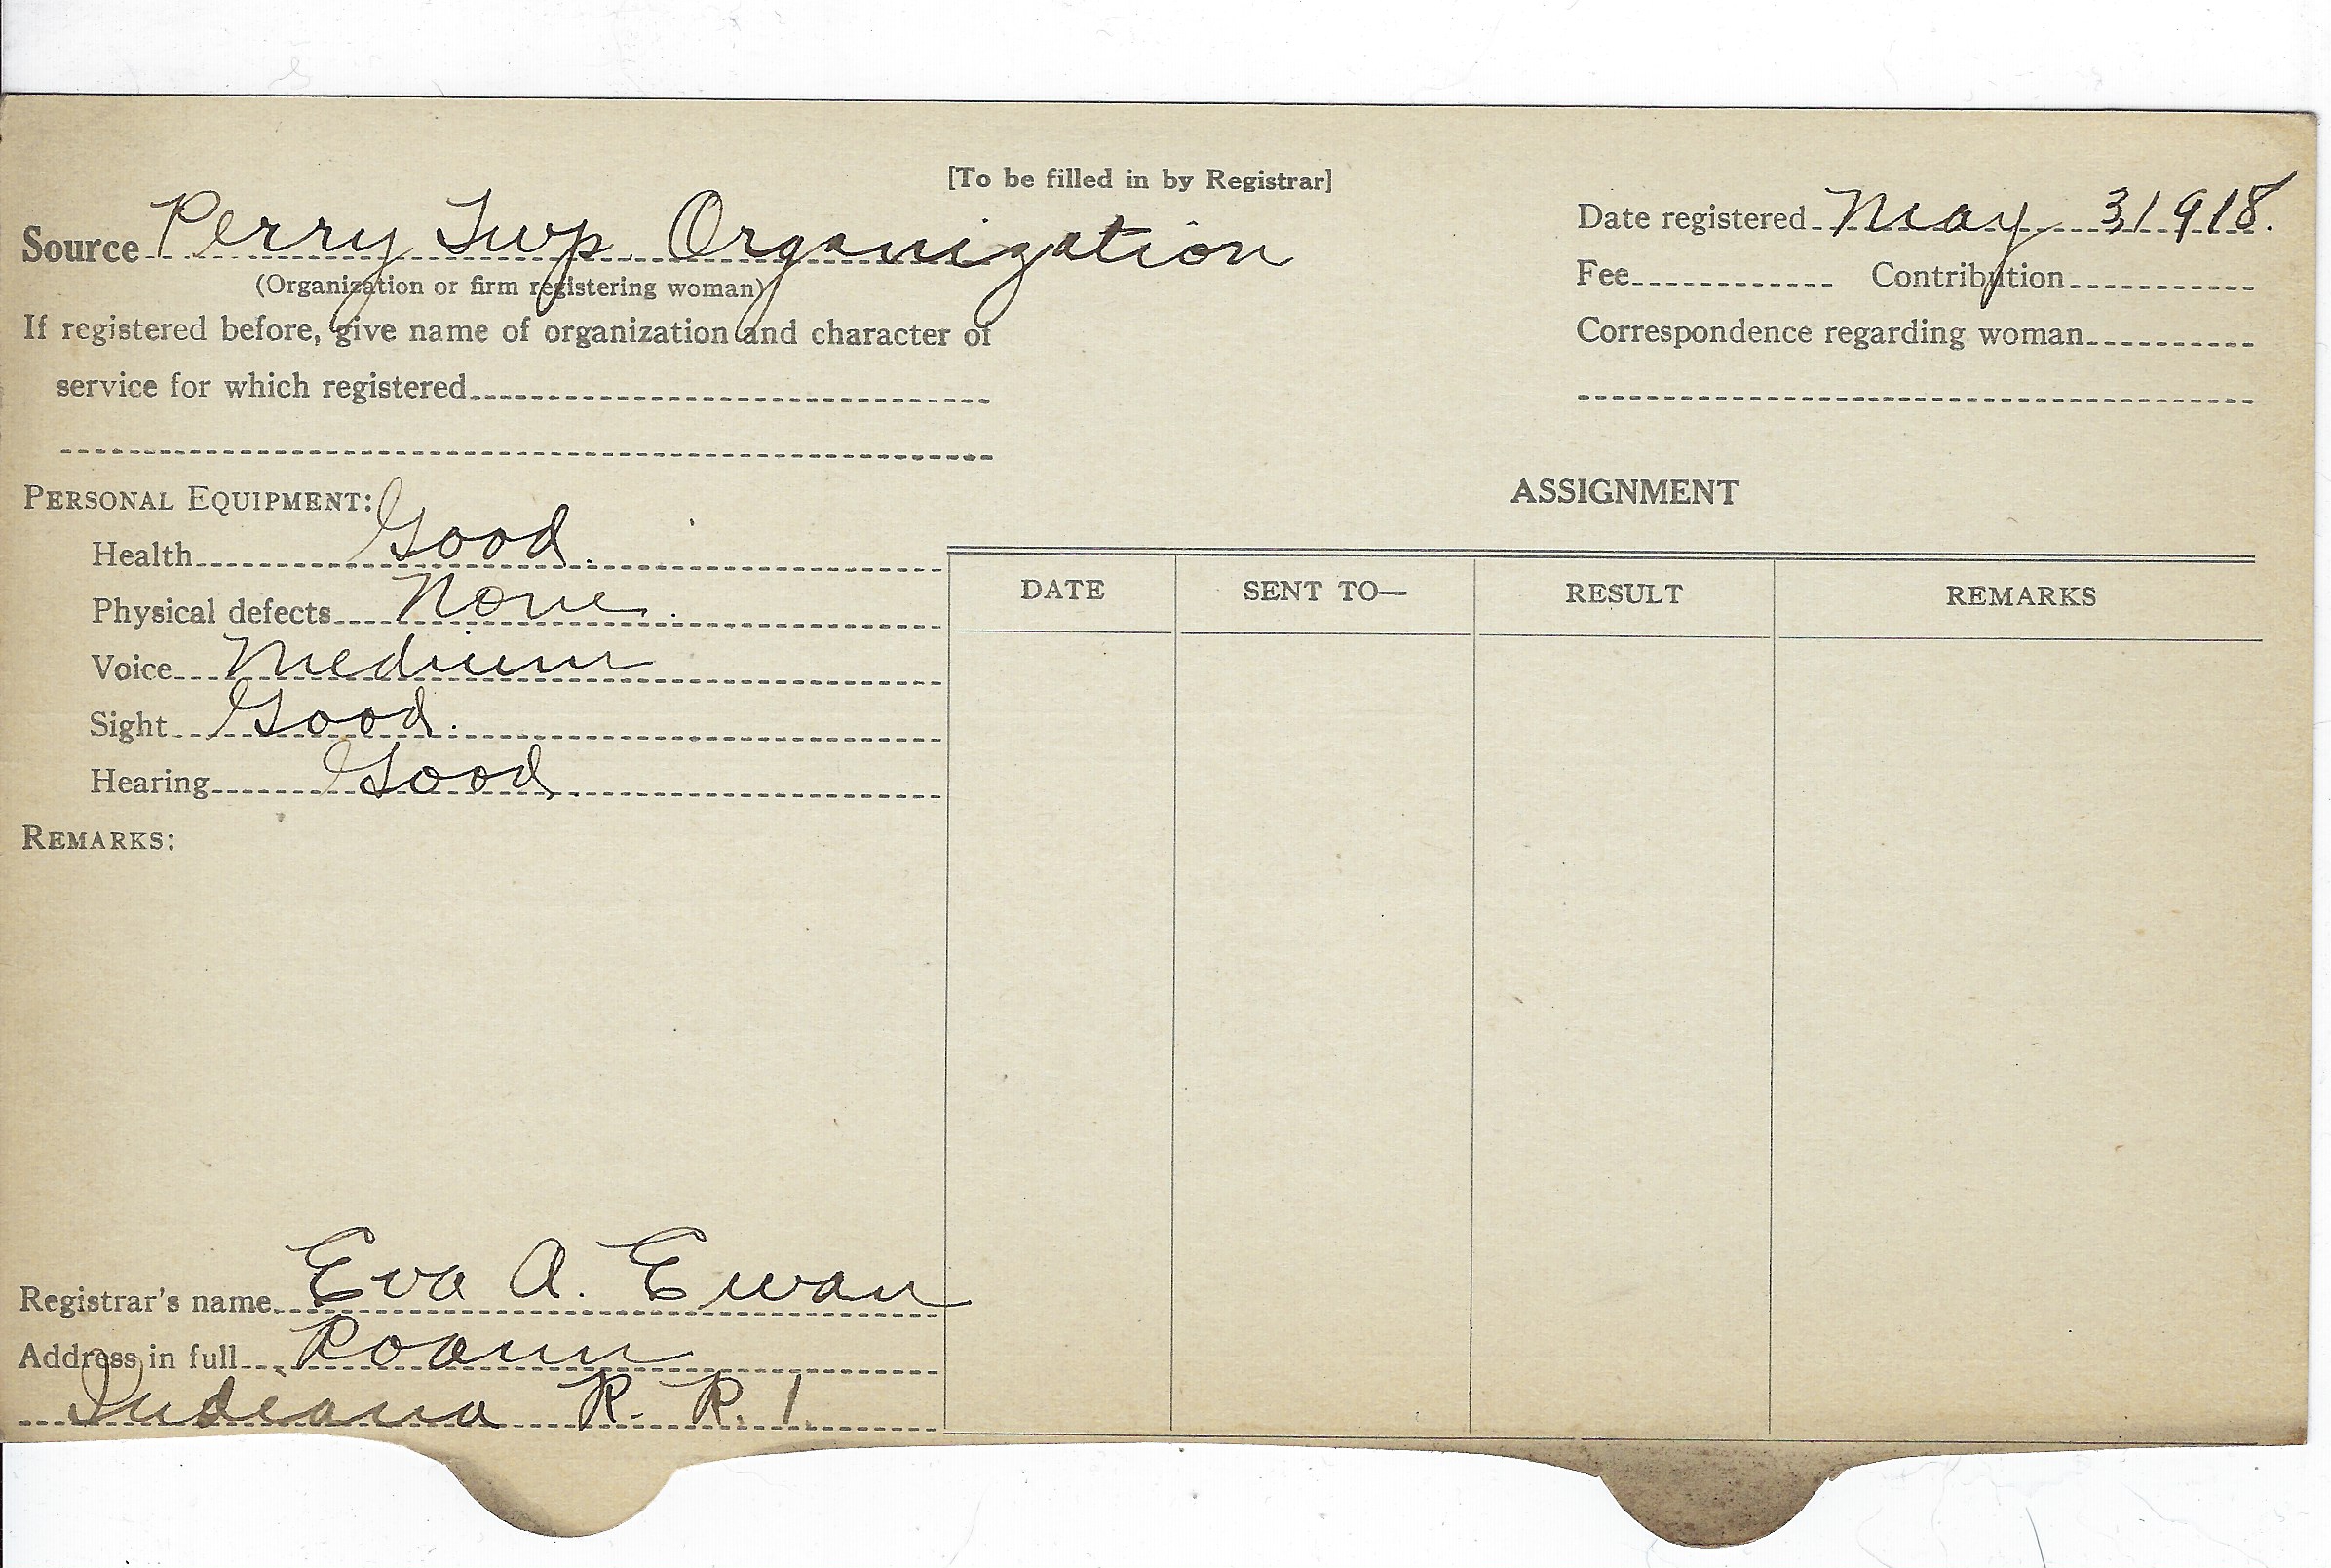 [To be filled in by Registrar]
Source Perry Twp. Organization
(Organization or firm registering woman)
If registered before, give name of organization and character of
service for which registered
Date registered May 3 1918.
Fee Contribution
Correspondence regarding woman
PERSONAL EQUIPMENT:
Health Good.
Physical defects None.
Voice Medium
Sight Good.
Hearing Good.
REMARKS:
Registrar's name Eva A. Ewan
Address in full Roann
Indiana R. R. 1.
ASSIGNMENT
DATE SENT TO— RESULT REMARKS